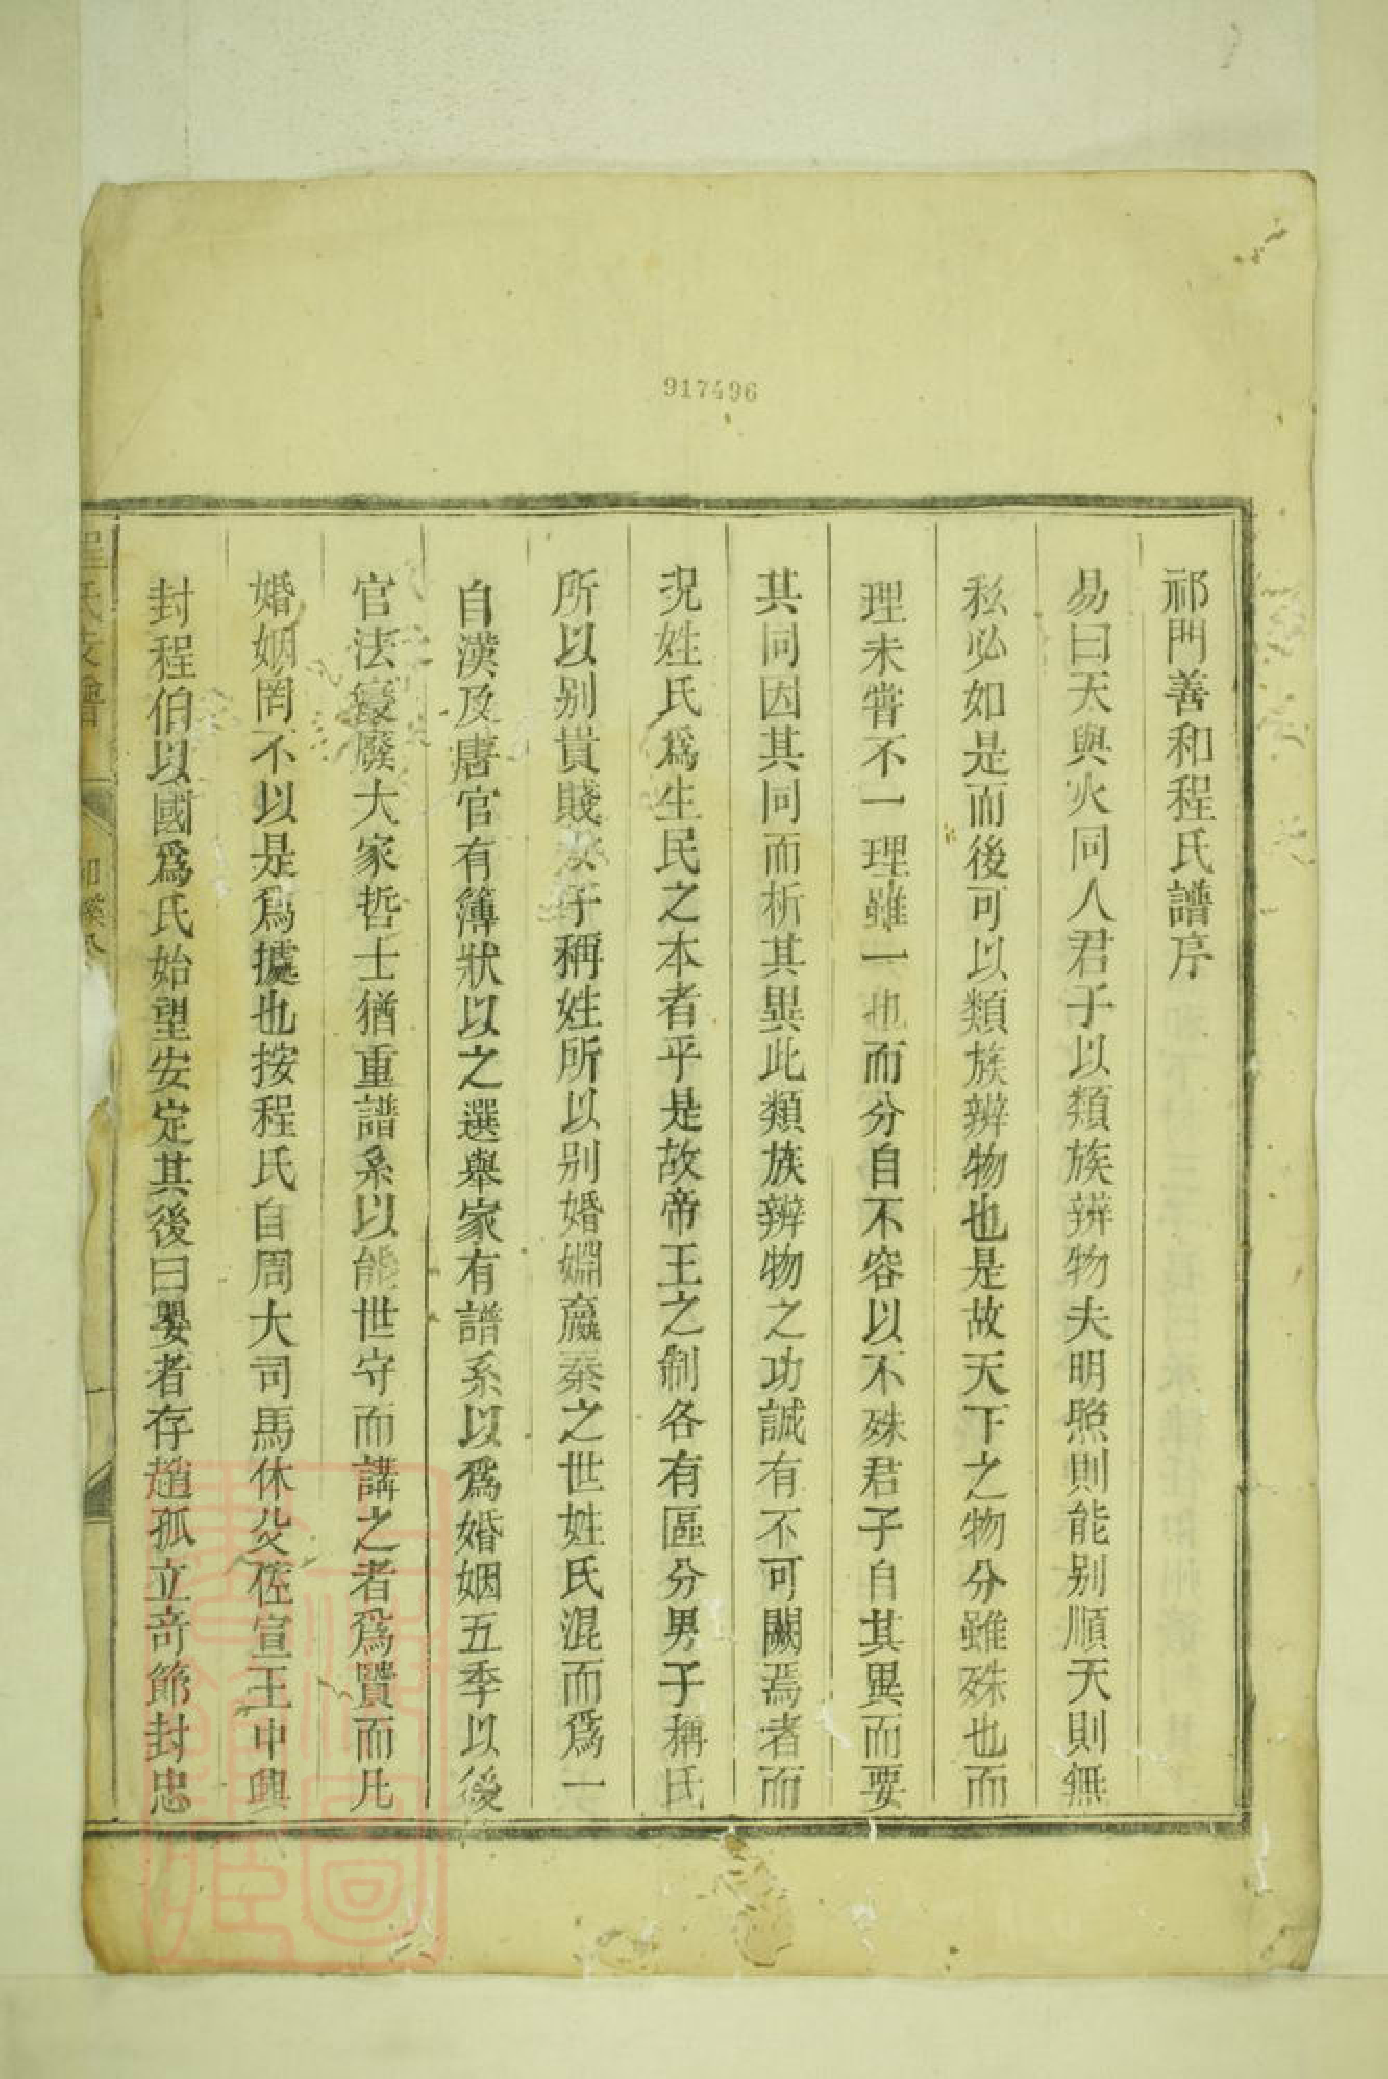 917496
祁門善和程氏譜序
易曰天與火同人君子以類族辨物夫明照則能别順天則無
私必如是而後可以類族辨物也是故天下之物分雖殊也而
理未甞不一理雖一也而分自不容以不殊君子自其異而要
其同因其同而析其異此類族辨物之功誠有不可闕焉者而
況姓氏爲生民之本者乎是故帝王之制各有區分男子稱氏
所以别貴賤女子稱姓所以别婚姻嬴秦之世姓氏混而爲一
自漢及唐官有簿狀以之選舉家有譜系以爲婚姻五季以後
官法寖廢大家哲士猶重譜系以能世守而講之者爲賢而凡
婚姻罔不以是爲據也按程氏自周大司馬休父佐宣王中興
封程伯以國爲氏始望安定其後曰嬰者存趙孤立奇節封忠
程氏支譜